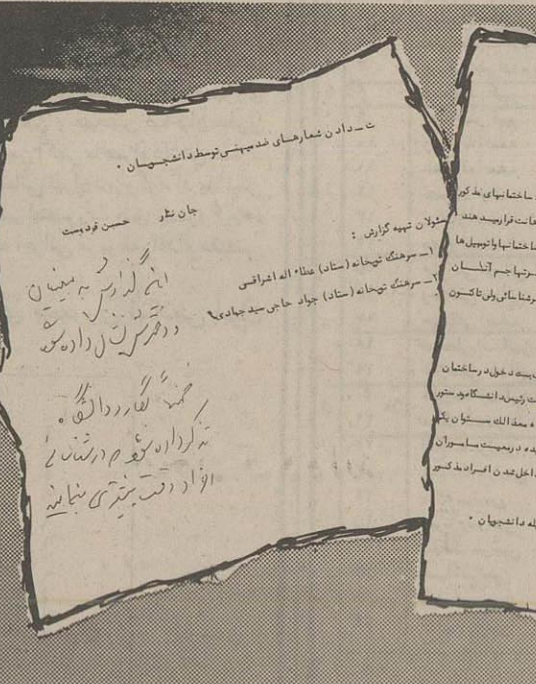 ت ـ دادن شعارهای ضد میهنی توسط دانشجویان .
جان نثار حسین فردوست
مسئولان تهیه گزارش :
۱ـ سرهنگ توپخانه (ستاد) عطاء اله اشراقی
۲ـ سرهنگ توپخانه (ستاد) جواد حاجی سید جوادی
این گزارش به
داده شود
ضمناً گارد دانشگاه
تذکر داده شود در شناسائی
افراد دقت بیشتری بنمایند
ساختمانهای مذکور
قرار میدهند
ساختمانها و اتومبیل ها
آنان
شناسائی ولی تاکنون
دخول در ساختمان
رئیس دانشگاه و دستور
معذالک مسئولان
مامورین
داخل شدن افراد مذکور
دانشجویان .